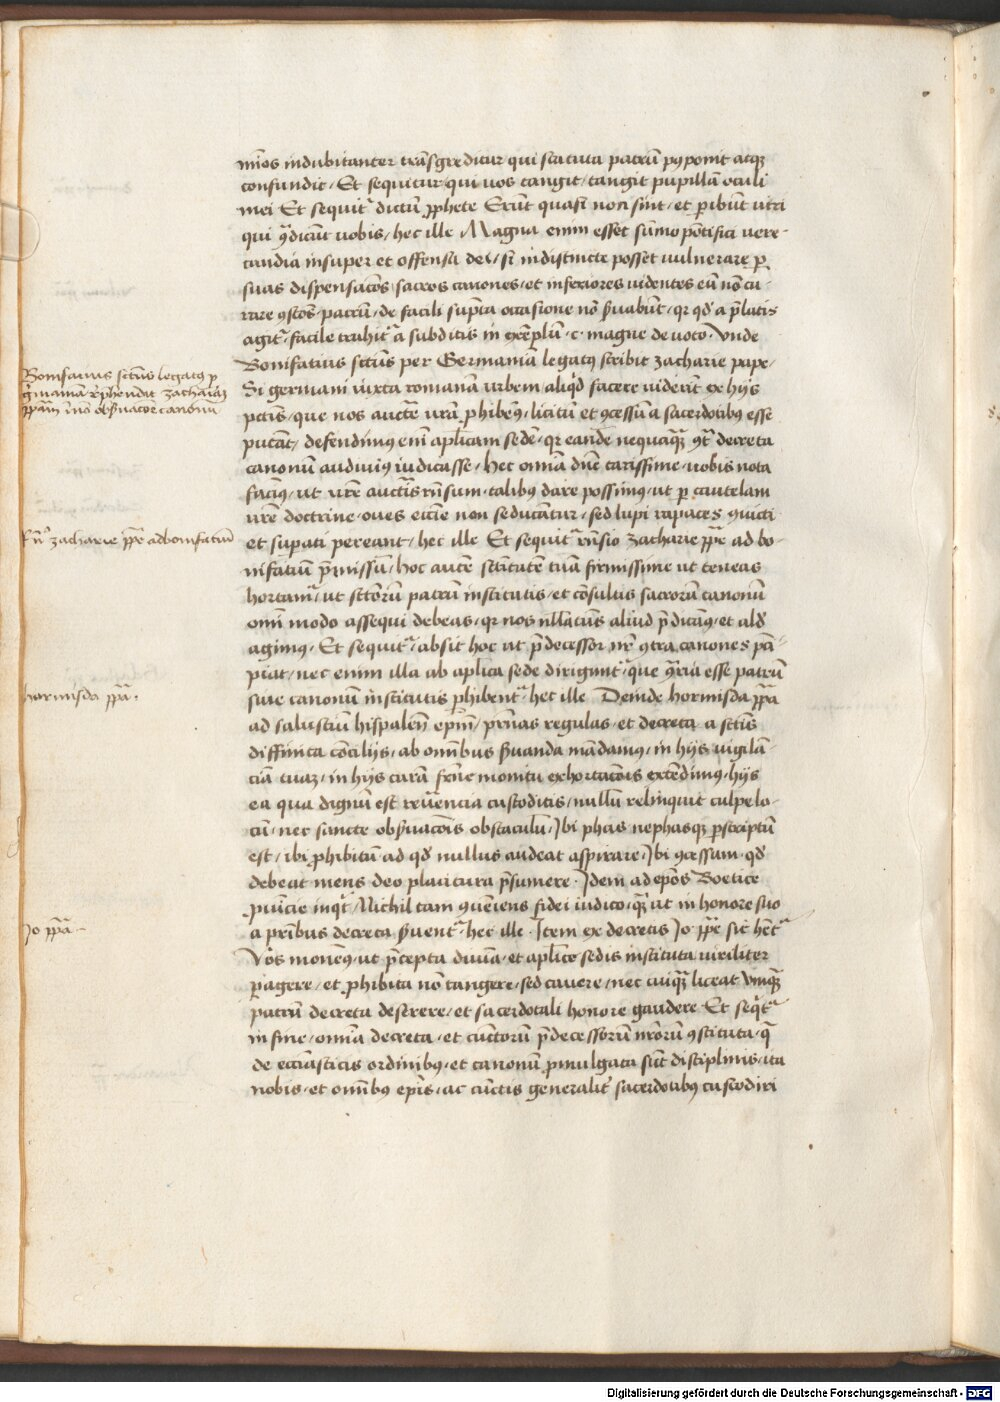 mīos indubitanter trāsgreditur qui statuta patrū p̄ꝯponit atqꝫ
confundit / Et sequitur qui uos tangit / tangit pupillā oculi
mei Et sequit᷑ dictū ꝓphete Erūt quasi non sint / et ꝑibūt uiri
qui ꝯ̄dicūt uobis / hec ille Magna enim esset sūmo pōtifici uere-
cundia insuper et offensa dei / si indistincte posset uulnerare ꝑ
suas dispensacōes sacros canones / et inferiores uidentes eū nō cu-
rare ꝯstōes patrū / de facili sūpta occasione nō ẜuabūt / qr qd̄ a p̄latis
agit᷑ / facile trahit᷑ a subditis in exēplū · c · magne de uoto · Unde
Bonifatius sctūs per Germaniā legatꝯ scribit zacharie pape /
Si germani iuxta romanā urbem / aliqd̄ facere uiderīt ex hijs
pctīs / que nos auctē urā ꝓhibemꝯ / licitū et ꝯcessū a sacerdotibꝯ esse
putāt / defendimꝯ enī aplicam sedē / qr eandē nequaqꝫ ꝯt᷑ decreta
canonū audiuiꝯ iudicasse / Hec omnia dn̄e carissime / uobis nota
facimꝯ / ut ur̄e auctīs rn̄sum / talibꝯ dare possimꝯ / ut ꝑ cautelam
ur̄e doctrine / oues eccīe non seducātur / sed lupi rapaces ꝯuicti
et supati pereant / hec ille Et sequit᷑ rn̄sio zacharie pp̄e ad bo-
nifatiū p̄missū / Hoc autē sctītatē tuā firmissime ut teneas
hortam᷑ / ut sctōrū patrū institutis / et cōsultis sacrorū canonū
omī modo assequi debeas / qr nos nllactūs aliud p̄dicamꝯ / et ald̄
agimꝯ / Et sequit᷑ / absit hoc ut p̄decessor nr̄ ꝯtra canones pcī-
piat / nec enim illa ab aplica sede dirigunt᷑ que ꝯ̄ria esse patrū
siue canonū institutis ꝓhibent᷑ / hec ille Deinde hormisda pp̄a
ad salustiū hispalēn̄ ep̄m / pr̄nas regulas / et decreta a sctīs
diffinita cōcilijs / ab omībus ẜuanda mādamus / in hijs uigilā-
ciā tuaꝫ / in hijs curā frn̄e monitu exhortacōis extēdimꝯ / hijs
ea qua dignū est reūencia custoditis / nullū relinquit culpe lo-
cū / nec sancte obẜuacōis obstaculū / Ibi phas nephasqꝫ ꝑscriptū
est / ibi ꝓhibitū ad qd̄ nullus audeat aspirare / Ibi ꝯcessum qd̄
debeat mens deo placitura p̄sumere · Idem ad ep̄os Boetice
ꝓuīcie inqt̄ / Nichil tam ꝯueniens fidei iudico / qꝫ ut in honore suo
a prībus decreta ẜuent᷑ / hec ille · Item ex decretis Jo pp̄e sic het᷑
Vos monemꝯ / ut p̄cepta diuīa / et aplice sedis instituta uiriliter
ꝑagere / et ꝓhibita nō tangere / sed cauere / nec cuiqꝫ liceat unqꝫ
patrū decreta deserere / et sacerdotali honore gaudere Et seqt᷑
in fine / omīa decreta / et cunctorū p̄decessorū nr̄orū ꝯstituta / q̄
de eccīasticis ordinibꝯ / et canonū ꝓmulgata sūt disciplinis / ita
nobis / et omībus ep̄is / ac cūctis generalit᷑ sacerdotibꝯ custodiri
Bonifatius sctūs legatꝯ ꝑ
ḡmaniā / rephendit zachariaꝫ
pp̄am in nō obẜuacōe canonū /
Rn̄ zacharie pp̄e ad bonifatiū
hormisda pp̄a ·
Jo pp̄a
Digitalisierung gefördert durch die Deutsche Forschungsgemeinschaft - DFG